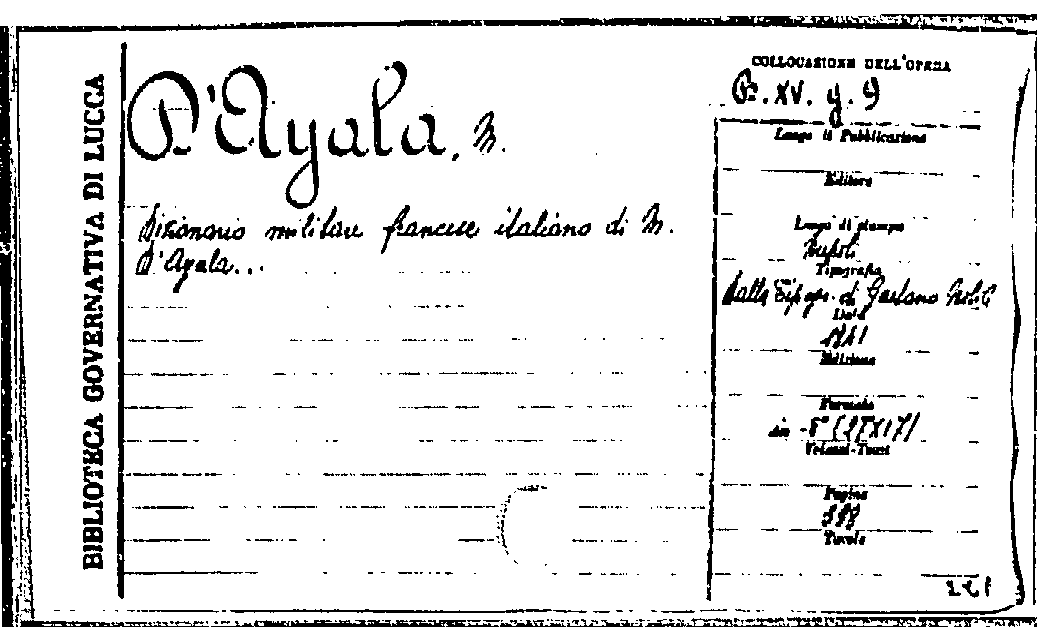 BIBLIOTECA GOVERNATIVA DI LUCCA
D'Ayala, M.
Dizionario militare francese italiano di M.
D'Ayala...
COLLOCAZIONE DELL'OPERA
XV. g. 9
Luogo di Pubblicazione
Editore
Luogo di stampa
Napoli
Tipografia
Dalla Tipogr. di Gaetano Nobile
Data
1841
Edizione
Formato
in-8° (27X17)
Volumi-Tomi
Pagine
Tavole